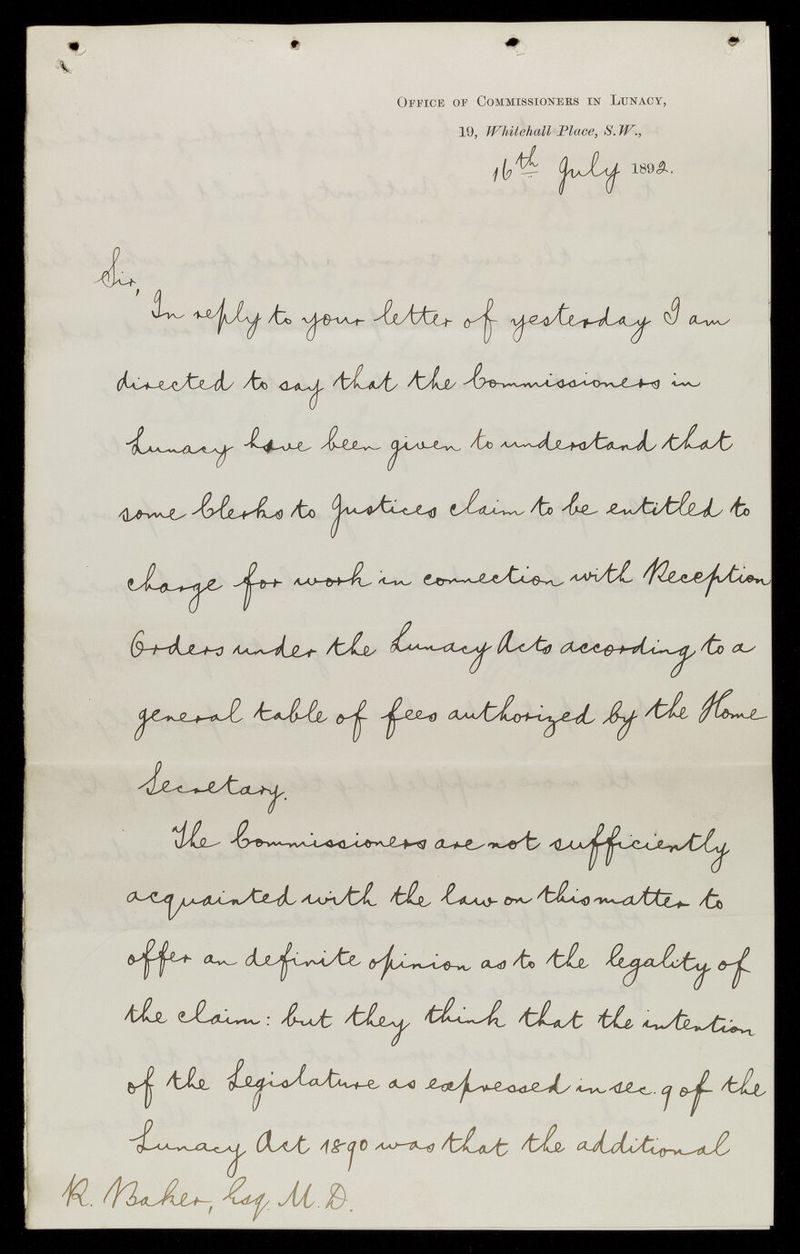 Office of Commissioners in Lunacy,
19, Whitehall Place, S.W.,
16th July 1892.
Sir,
In reply to your letter of yesterday I am
directed to say that the Commissioners in
Lunacy have been given to understand that
some Clerks to Justices claim to be entitled to
charge for work in connection with Reception
Orders under the Lunacy Acts according to a
general table of fees authorized by the Home
Secretary.
The Commissioners are not sufficiently
acquainted with the law on this matter to
offer an definite opinion as to the legality of
the claim: but they think that the intention
of the Legislature as expressed in sec. 9 of the
Lunacy Act 1890 was that the additional
R. Baker, Esq. M.D.